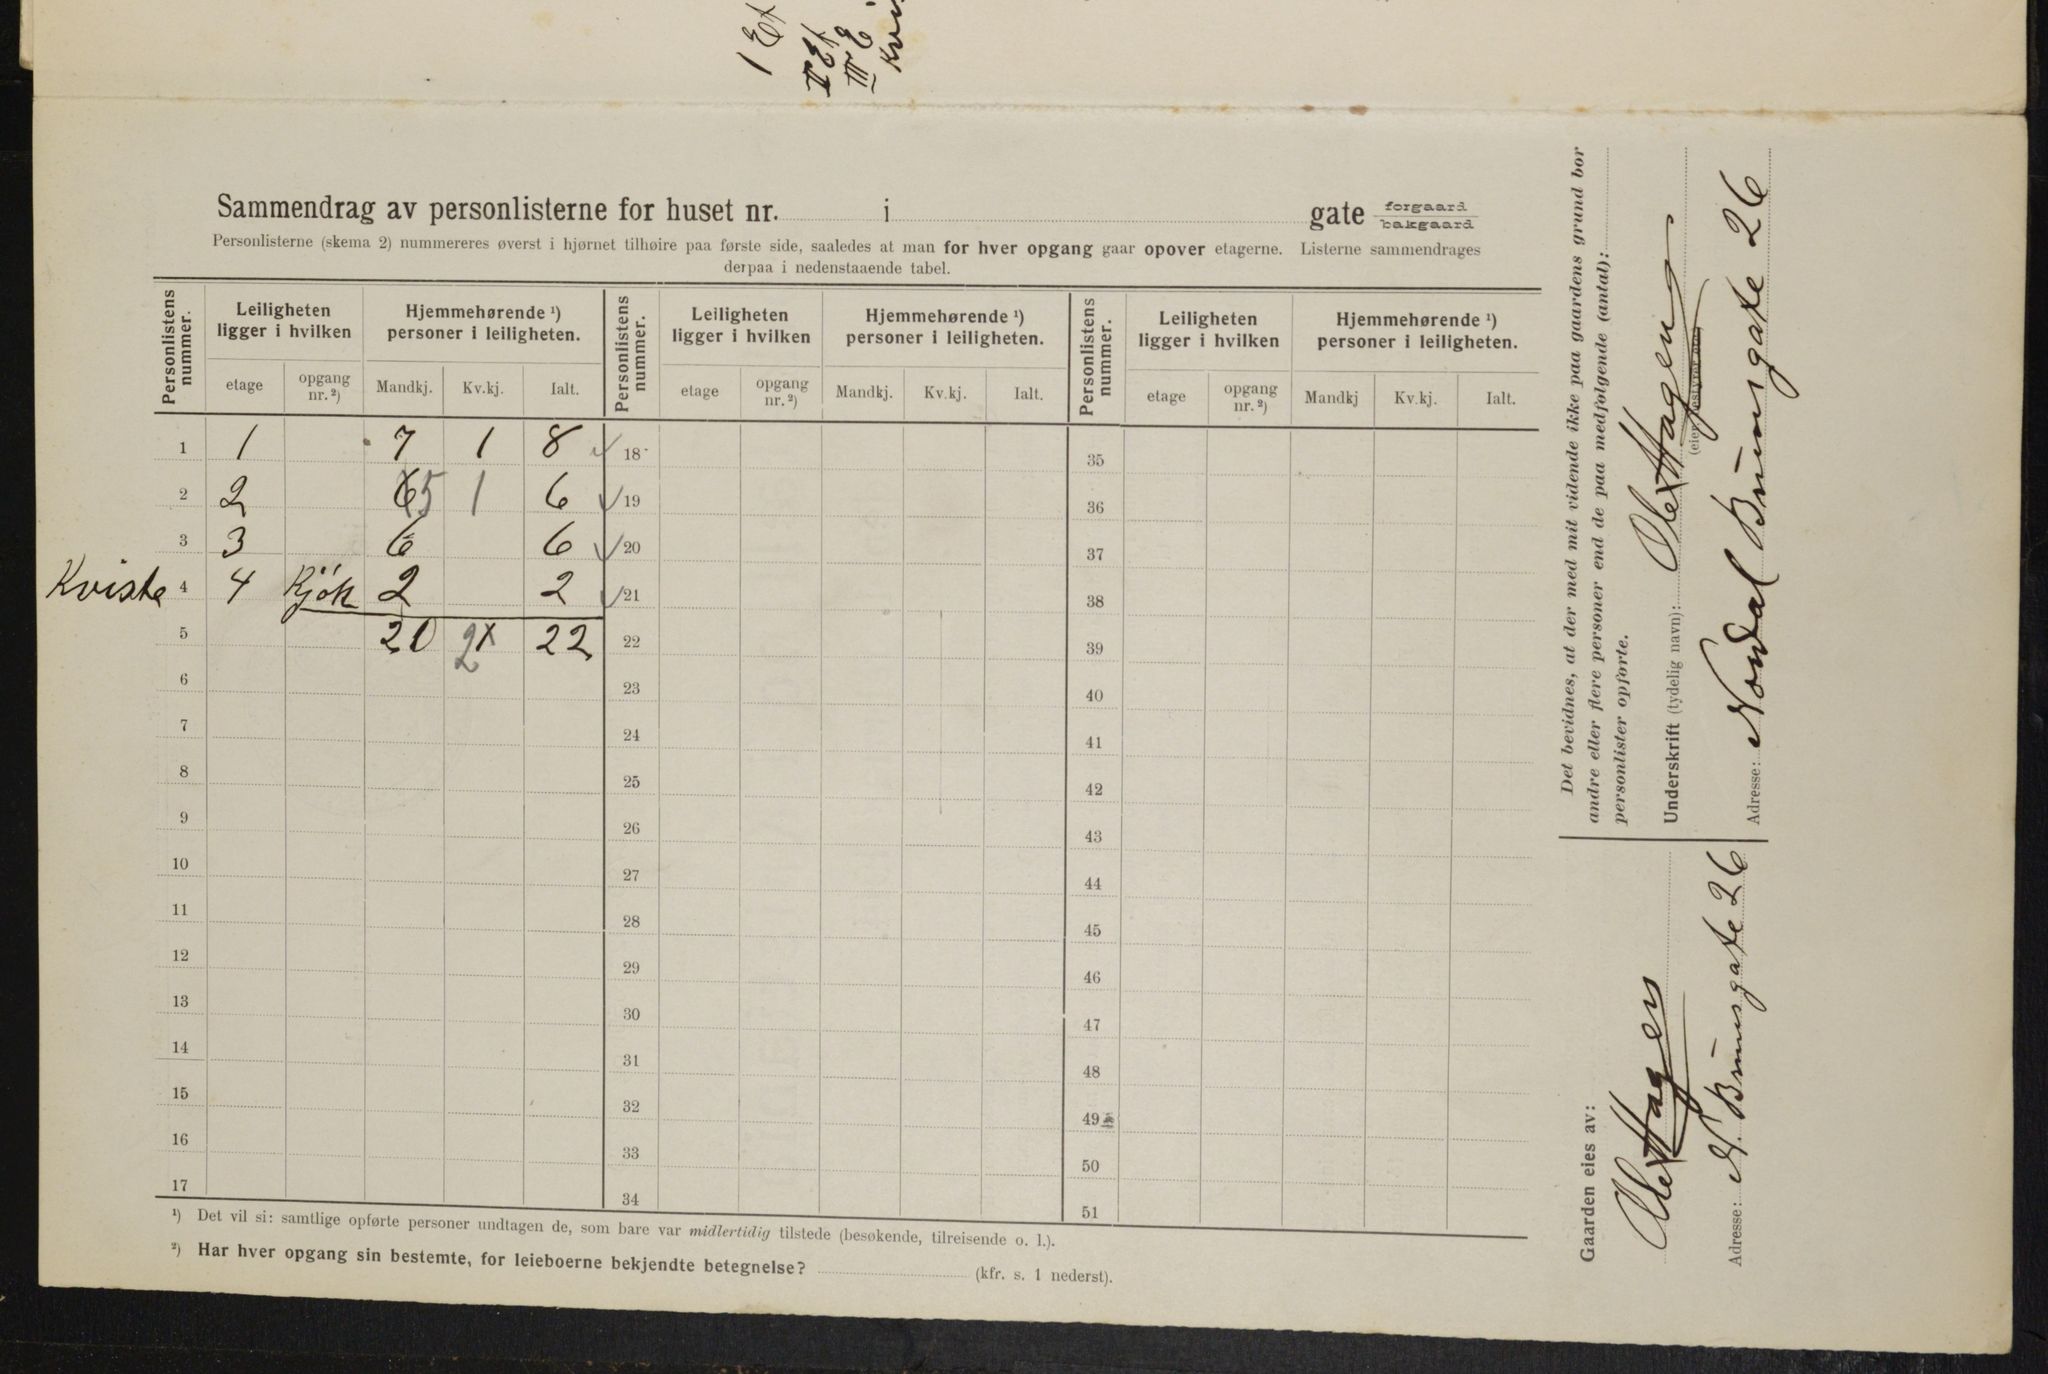 1 Et
II Et
III E
Kvi
Sammendrag av personlisterne for huset nr. i gate forgaard bakgaard
Personlisterne (skema 2) nummereres øverst i hjørnet tilhøire paa første side, saaledes at man for hver opgang gaar opover etagerne. Listerne sammendrages
derpaa i nedenstaaende tabel.
Personlistens nummer. Leiligheten ligger i hvilken Hjemmehørende ¹) personer i leiligheten. Personlistens nummer. Leiligheten ligger i hvilken Hjemmehørende ¹) personer i leiligheten. Personlistens nummer. Leiligheten ligger i hvilken Hjemmehørende ¹) personer i leiligheten.
etage opgang nr. ²) Mandkj. Kv.kj. Ialt. etage opgang nr. ²) Mandkj. Kv.kj. Ialt. etage opgang nr. ²) Mandkj Kv.kj. Ialt.
1 1 7 1 8 18 35
2 2 6 5 1 6 19 36
3 3 6 6 20 37
Kviste 4 4 Kjök 2 2 21 38
5 20 2 22 22 39
6 23 40
7 24 41
8 25 42
9 26 43
10 27 44
11 28 45
12 29 46
13 30 47
14 31 48
15 32 49
16 33 50
17 34 51
¹) Det vil si: samtlige opførte personer undtagen de, som bare var midlertidig tilstede (besøkende, tilreisende o. l.).
²) Har hver opgang sin bestemte, for leieboerne bekjendte betegnelse? (kfr. s. 1 nederst).
Det bevidnes, at der med mit vidende ikke paa gaardens grund bor
andre eller flere personer end de paa medfølgende (antal):
personlister opførte.
Underskrift (tydelig navn): Ole Hagen
(eier, bestyrer etc.)
Adresse: Nordal Brunsgate 26
Gaarden eies av:
Ole Hagen
Adresse: N. Brunsgate 26